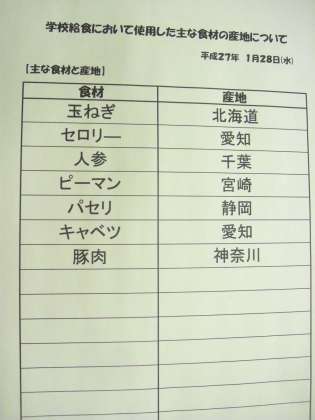 学校給食において使用した主な食材の産地について
平成27年 1月28日(水)
【主な食材と産地】
食材 産地
玉ねぎ 北海道
セロリー 愛知
人参 千葉
ピーマン 宮崎
パセリ 静岡
キャベツ 愛知
豚肉 神奈川